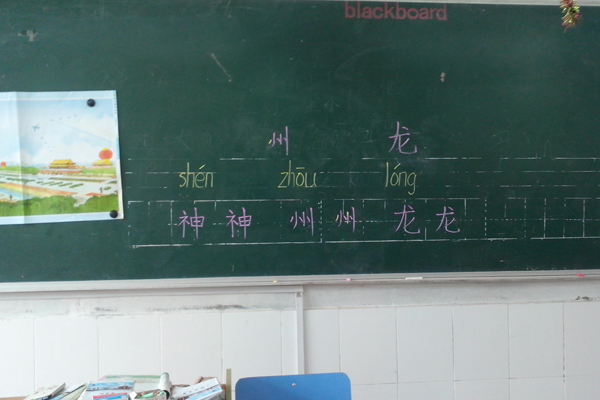 blackboard
州 龙
shén zhōu lóng
神 神 州 州 龙 龙